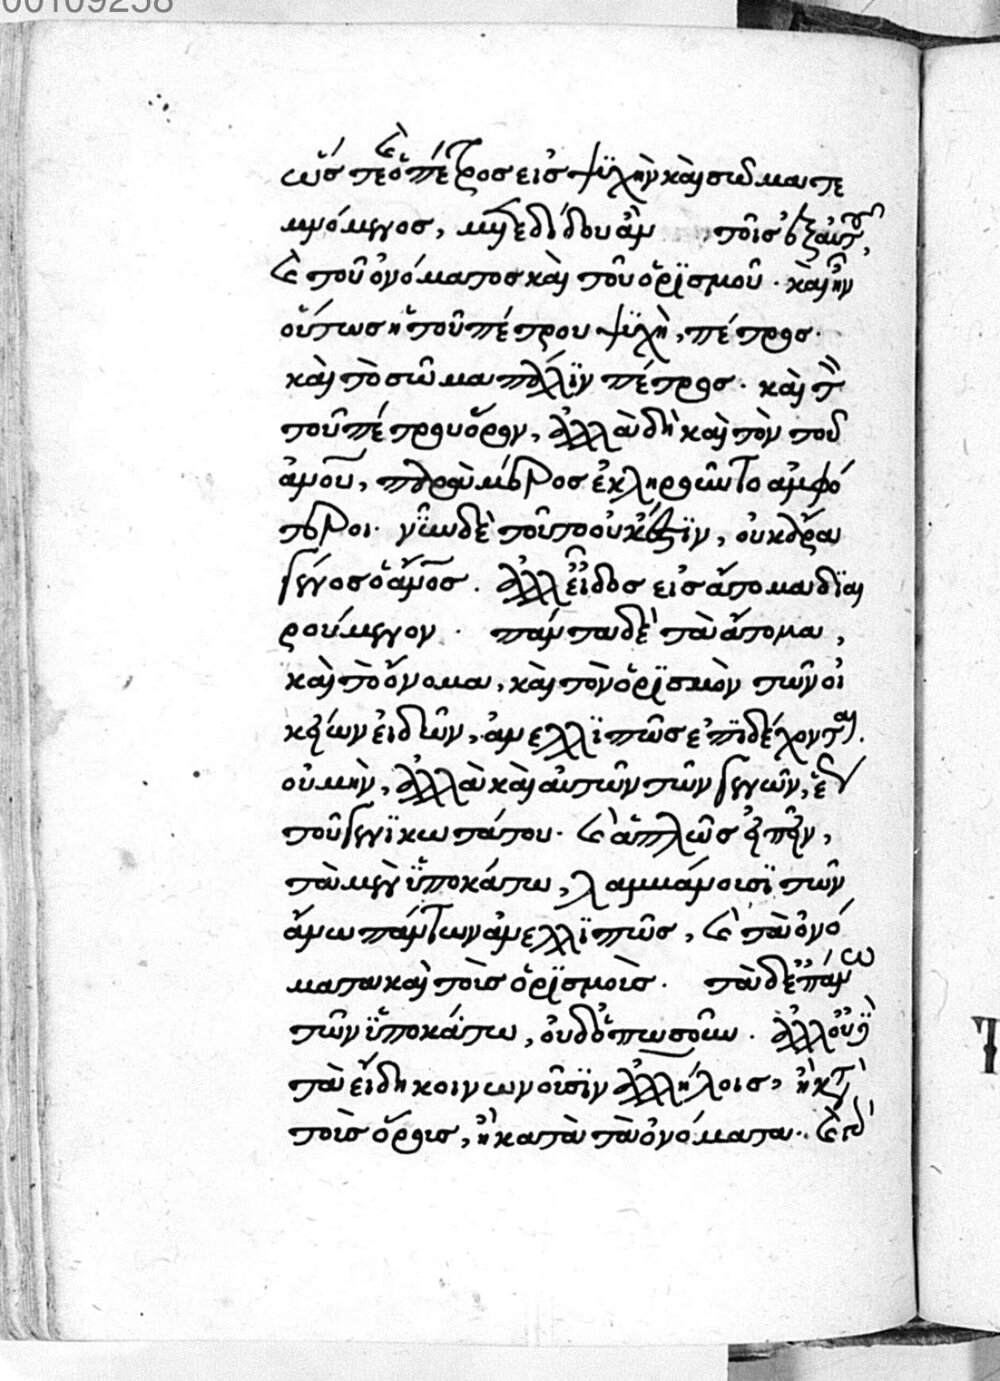 00109258
ὥσπερ ὁ πέτρος εἰς ψϋχὴν καὶ σῶμα τε
μνόμενος, μὴ ἐδίδου ἂν τοῖς ἐξ αὐτοῦ,
καὶ τοῦ ὀνόματος καὶ τοῦ ὁρϊσμοῦ. καὶ ἦν
οὕτως ἡ τοῦ πέτρου ψϋχὴ, πέτρος.
καὶ τὸ σῶμα πάλϊν πέτρος. καὶ τὸν
τοῦ πέτρου ὅρον, ἀλλὰ δὴ καὶ τὸν τοῦ
ἀνοῦ, παρὰ μέρος ἐκληροῦντο ἀμφό
τεροι. νῦν δὲ τοῦτο οὐκ ἔστϊν, οὐκ ἄρα
γένος ὁ ἄνος. ἀλλ' εἶδος εἰς ἄτομα δϊαι
ρούμενον. πάντα δὲ τὰ ἄτομα,
καὶ τὸ ὄνομα, καὶ τὸν ὁρϊσμὸν τῶν οἰ
κείων εἰδῶν, ἀνελλϊπῶς ἐπϊδέχονται.
οὐ μὴν, ἀλλὰ καὶ αὐτῶν τῶν γενῶν,
τοῦ γενϊκωτάτου. καὶ ἁπλῶς εἰπεῖν,
τὰ μὲν ὑποκάτω, λαμβάνουσϊ τῶν
ἄνω πάντων ἀνελλϊπῶς, καὶ τὰ ὀνό
ματα καὶ τοῖς ὁρϊσμοῖς. τὰ δὲ ἐπάνω
τῶν ὑποκάτω, οὐδ' ὁπωσοῦν. ἀλλ' οὐδὲ
τὰ εἴδη κοινωνοῦσϊν ἀλλήλοις, ἢ κατὰ
τοῖς ὅροις, ἢ κατὰ τὰ ὀνόματα.